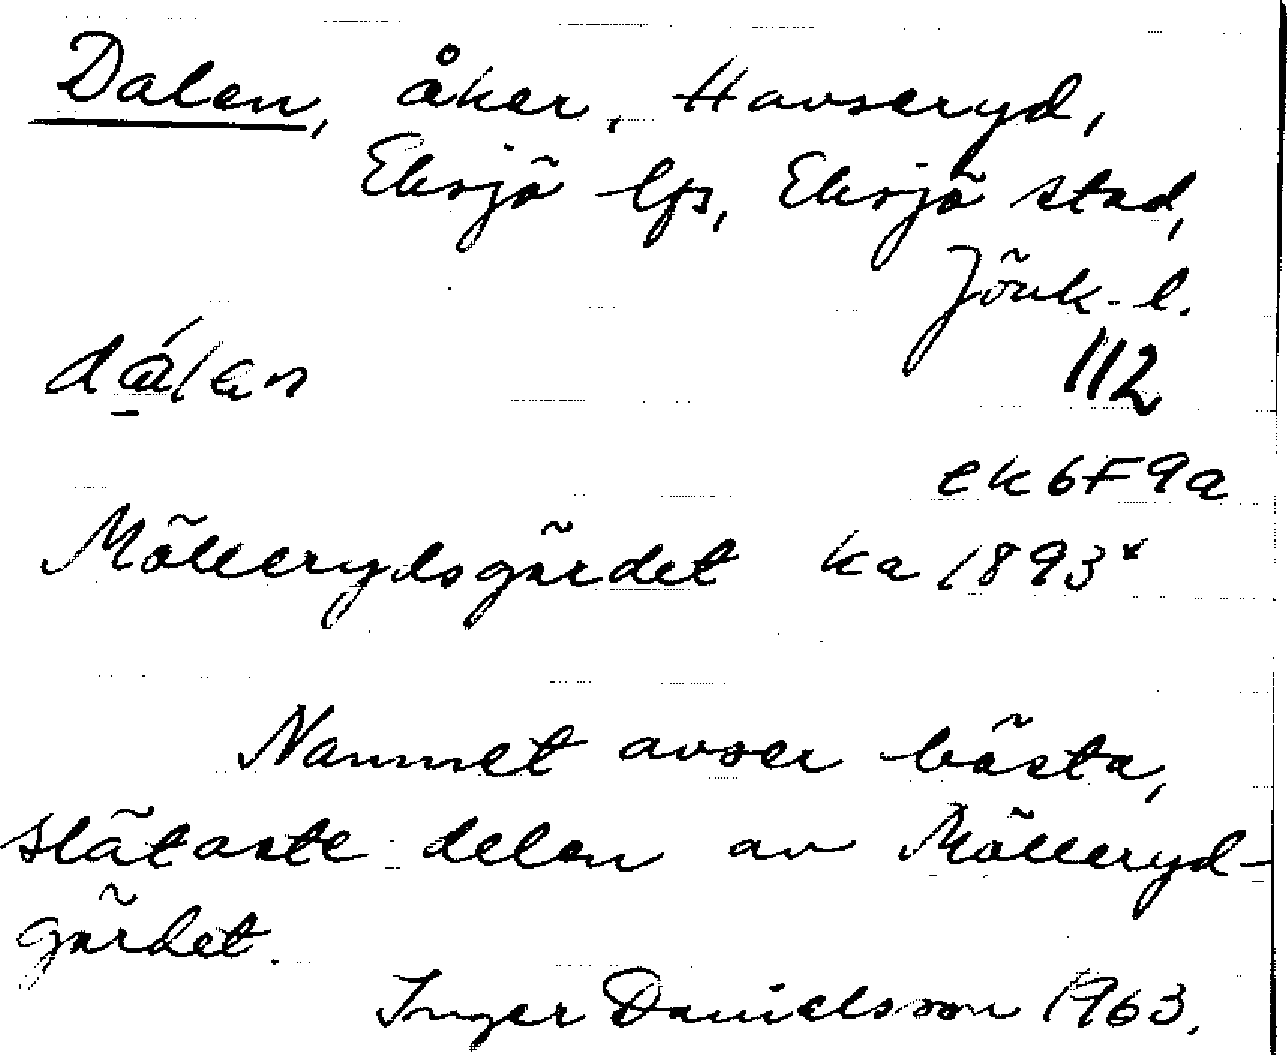 Dalen, åker, Havseryd,
Eksjö lfs, Eksjö stad,
Jönk. l.
dálan 112
ek 6F9a
Möllerydsgärdet ka 1893*
Namnet avser bästa,
slätaste delen av Mölleryd-
gärdet.
Inger Danielsson 1963.